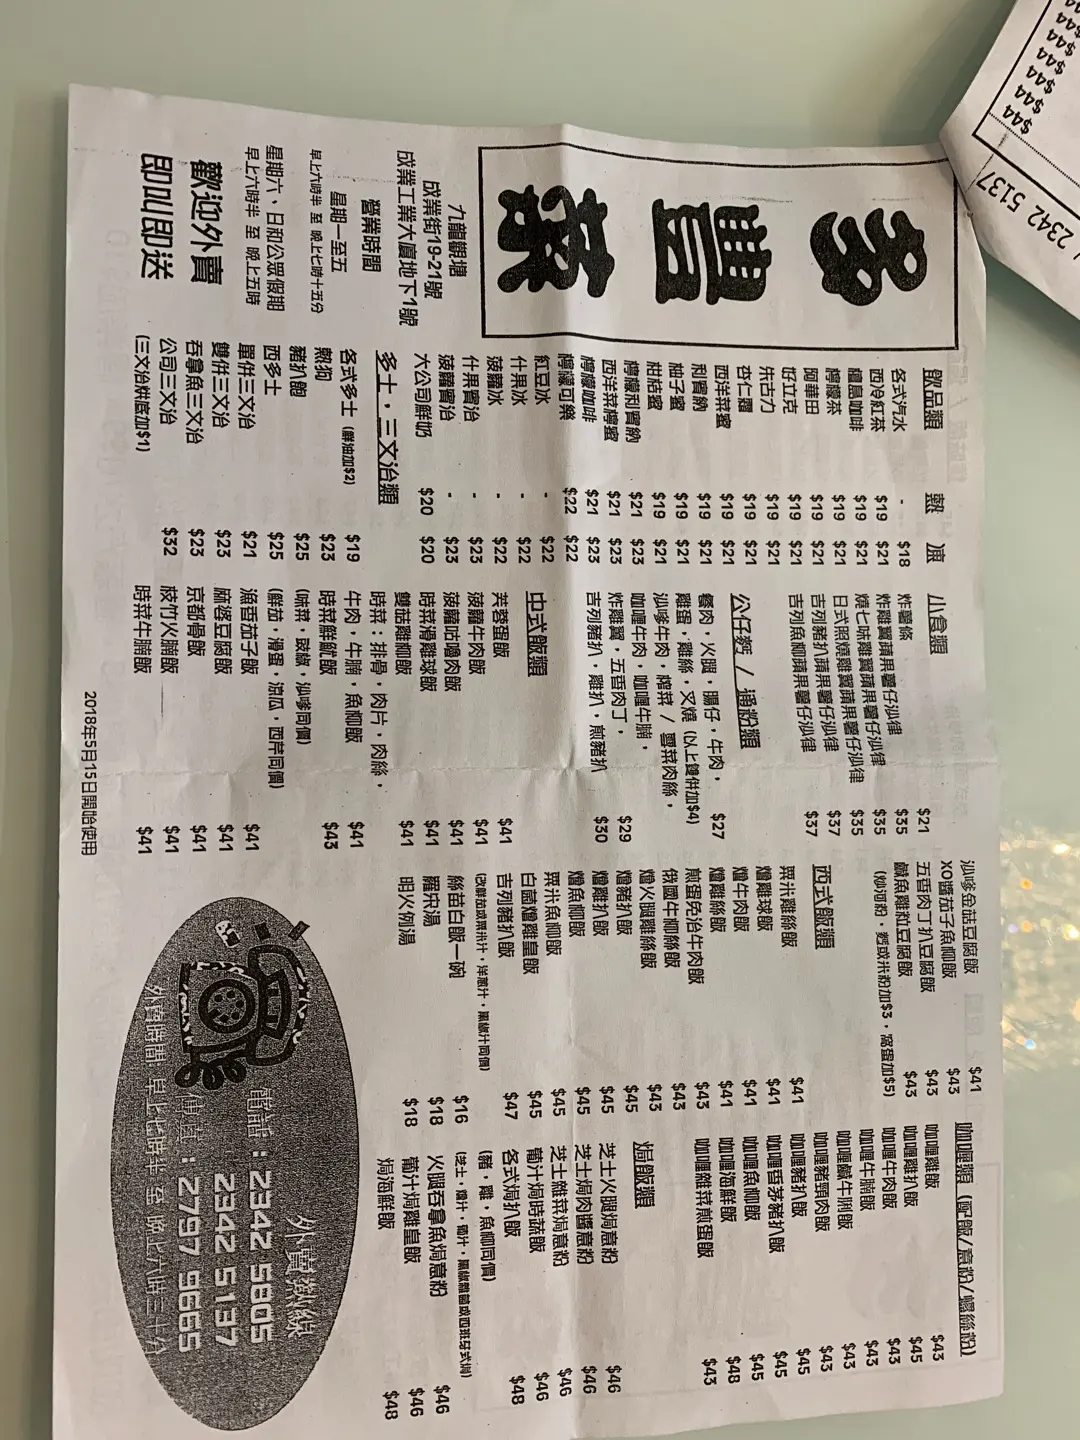 多豐菜
九龍觀塘
成業街19-21號
成業工業大廈地下1號
營業時間
星期一至五
早上六時半 至 晚上七時十五分
星期六、日和公眾假期
早上六時半 至 晚上五時
歡迎外賣
即叫即送
飲品類 熱 凍
各式汽水 - $18
西冷紅茶 $19 $21
檀島咖啡 $19 $21
檸檬茶 $19 $21
阿華田 $19 $21
好立克 $19 $21
朱古力 $19 $21
杏仁霜 $19 $21
西洋菜蜜 $19 $21
利賓納 $19 $21
柚子蜜 $19 $21
柑桔蜜 $19 $21
檸檬利賓納 $21 $23
西洋菜檸蜜 $21 $23
檸檬咖啡 $21 $23
檸檬可樂 $22 $22
紅豆冰 - $22
什果冰 - $22
菠蘿冰 - $22
什果賓治 - $23
菠蘿賓治 - $23
大公司鮮奶 $20 $20
多士，三文治類
各式多士 (鮮油加$2) $19
熱狗 $23
豬扒飽 $25
西多士 $25
單併三文治 $21
雙併三文治 $23
吞拿魚三文治 $23
公司三文治 $32
(三文治烘底加$1)
小食類
炸薯條 $21
炸雞翼蘋果薯仔沙律 $35
燒七味雞翼蘋果薯仔沙律 $35
日式照燒雞翼蘋果薯仔沙律 $35
吉列豬扒蘋果薯仔沙律 $37
吉列魚柳蘋果薯仔沙律 $37
公仔麪 / 通粉類
餐肉，火腿，腸仔，牛肉， $27
雞蛋，雞絲，叉燒 (以上雙併加$4)
沙嗲牛肉，榨菜 / 雪菜肉絲，
咖喱牛肉，咖喱牛腩， $29
炸雞翼，五香肉丁， $30
吉列豬扒，雞扒，煎豬扒
中式飯類
芙蓉蛋飯 $41
菠蘿牛肉飯 $41
菠蘿咕嚕肉飯 $41
時菜滑雞球飯 $41
雙菇雞柳飯 $41
時菜：排骨，肉片，肉絲，
牛肉，牛腩，魚柳飯 $41
時菜鮮魷飯 $43
(味菜，豉椒，沙嗲同價)
(鮮茄，滑蛋，涼瓜，西芹同價)
漁香茄子飯 $41
麻婆豆腐飯 $41
京都骨飯 $41
枝竹火腩飯 $41
時菜牛腩飯 $41
沙嗲金菇豆腐飯 $41
XO醬茄子魚柳飯 $43
五香肉丁扒豆腐飯 $43
鹹魚雞粒豆腐飯 $43
(炒河粉，麪或米粉加$3，窩蛋加$5)
西式飯類
粟米雞絲飯 $41
燴雞球飯 $41
燴牛肉飯 $41
燴雞絲飯 $41
煎蛋免治牛肉飯 $43
俄國牛柳絲飯 $43
燴火腿雞絲飯 $43
燴豬扒飯 $45
燴雞扒飯 $45
燴魚柳飯 $45
粟米魚柳飯 $45
白菌燴雞皇飯 $45
吉列豬扒飯 $47
(改鮮茄或粟米汁，洋蔥汁，黑椒汁同價)
絲苗白飯一碗 $16
羅宋湯 $18
明火例湯 $18
咖喱類 (配飯/意粉/螺絲粉)
咖喱雞飯 $43
咖喱雞扒飯 $45
咖喱牛肉飯 $43
咖喱牛腩飯 $43
咖喱鹹牛脷飯 $43
咖喱豬頸肉飯 $43
咖喱豬扒飯 $45
咖喱香茅豬扒飯 $45
咖喱魚柳飯 $45
咖喱海鮮飯 $48
咖喱雜菜煎蛋飯 $43
焗飯類
芝士火腿焗意粉 $46
芝士焗肉醬意粉 $46
芝士雜菜焗意粉 $46
葡汁焗時蔬飯 $46
各式焗扒飯 $48
(豬，雞，魚柳同價)
火腿吞拿魚焗意粉 $46
葡汁焗雞皇飯 $46
焗海鮮飯 $48
外賣熱線
電話：2342 5805
2342 5137
傳真：2797 9665
2018年5月15日開始使用
$44
$44
$44
$44
$44
$44
2342 5137